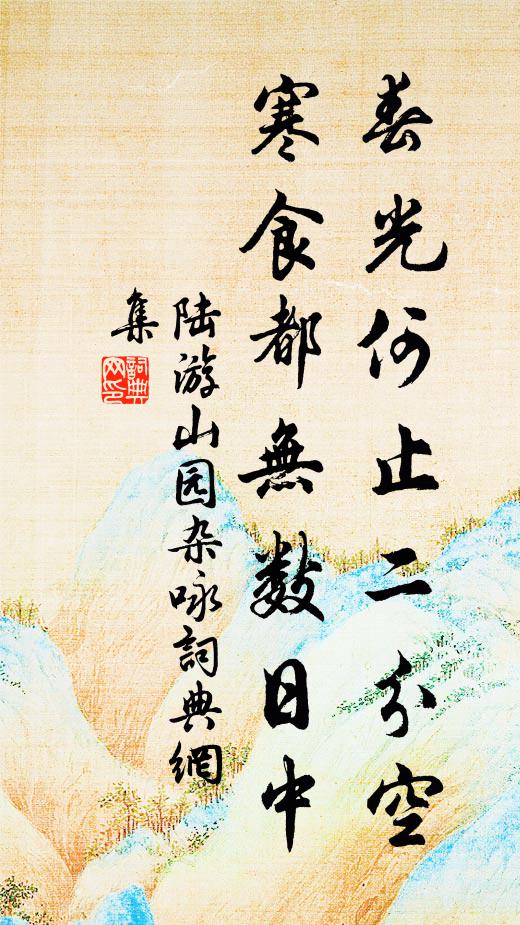 春光何止二分空
寒食都無数日中
陆游山园杂咏詞典網
集
詞典网印